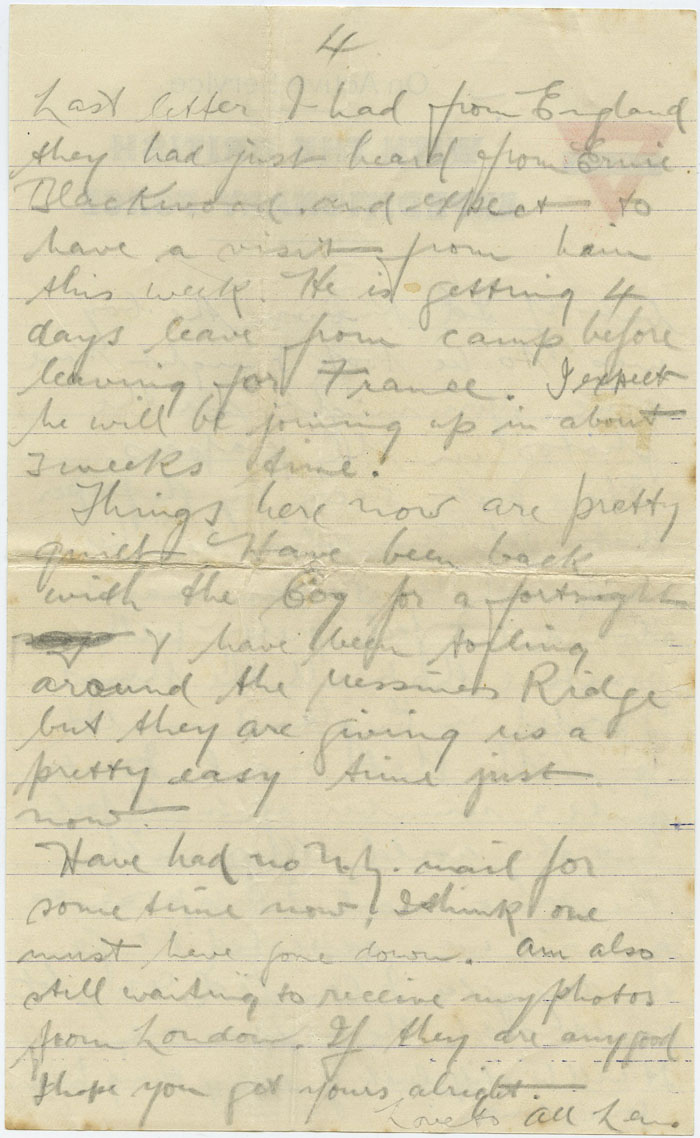 4
Last letter I had from England
they had just heard from Ernie
Blackwood. and expect to
have a visit from him
this week. He is getting 4
days leave from camp before
leaving for France. I expect
he will be joining up in about
3 weeks time.
Things here now are pretty
quiet Have been back
with the Coy for a fortnight
& have been toiling
around the Messines Ridge
but they are giving us a
pretty easy time just
now.
Have had no N.Z. mail for
some time now, I think one
must have gone down. Am also
still waiting to receive my photos
from London. If they are any good
I hope you get yours alright.
Love to All Len.